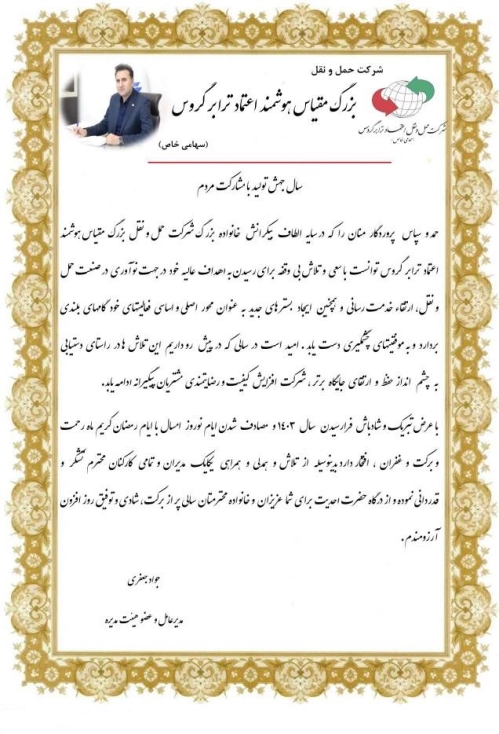 شرکت حمل و نقل
بزرگ مقیاس هوشمند اعتماد ترابر گروس
(سهامی خاص)
شرکت حمل و نقل اعتماد ترابر گروس
سال جهش تولید با مشارکت مردم
حمد و سپاس پروردگار منان را که در سایه الطاف بیکرانش خانواده بزرگ شرکت حمل و نقل بزرگ مقیاس هوشمند
اعتماد ترابر گروس توانست با سعی و تلاش بی وقفه برای رسیدن به اهداف عالیه خود در جهت نوآوری در صنعت حمل
و نقل، ارتقاء خدمت رسانی و همچنین ایجاد بسترهای جدید به عنوان محور اصلی و اساسی فعالیتهای خود گامهای بلندی
بردارد و به موفقیتهای چشمگیری دست یابد . امید است در سالی که در پیش رو داریم این تلاش ها در راستای دستیابی
به چشم انداز حفظ و ارتقای جایگاه برتر ، شرکت افزایش کیفیت و رضایتمندی مشتریان پیگیرانه ادامه یابد.
با عرض تبریک و شادباش فرارسیدن سال ۱۴۰۳ و مصادف شدن ایام نوروز امسال با ایام رمضان کریم ماه رحمت
و برکت و غفران ، افتخار دارد بدینوسیله از تلاش و همدلی و همراهی یکایک مدیران و تمامی کارکنان محترم تشکر و
قدردانی نموده و از درگاه حضرت احدیت برای شما عزیزان و خانواده محترمتان سالی پر از برکت، شادی و توفیق روز افزون
آرزومندم.
جواد جعفری
مدیرعامل و عضو هیئت مدیره